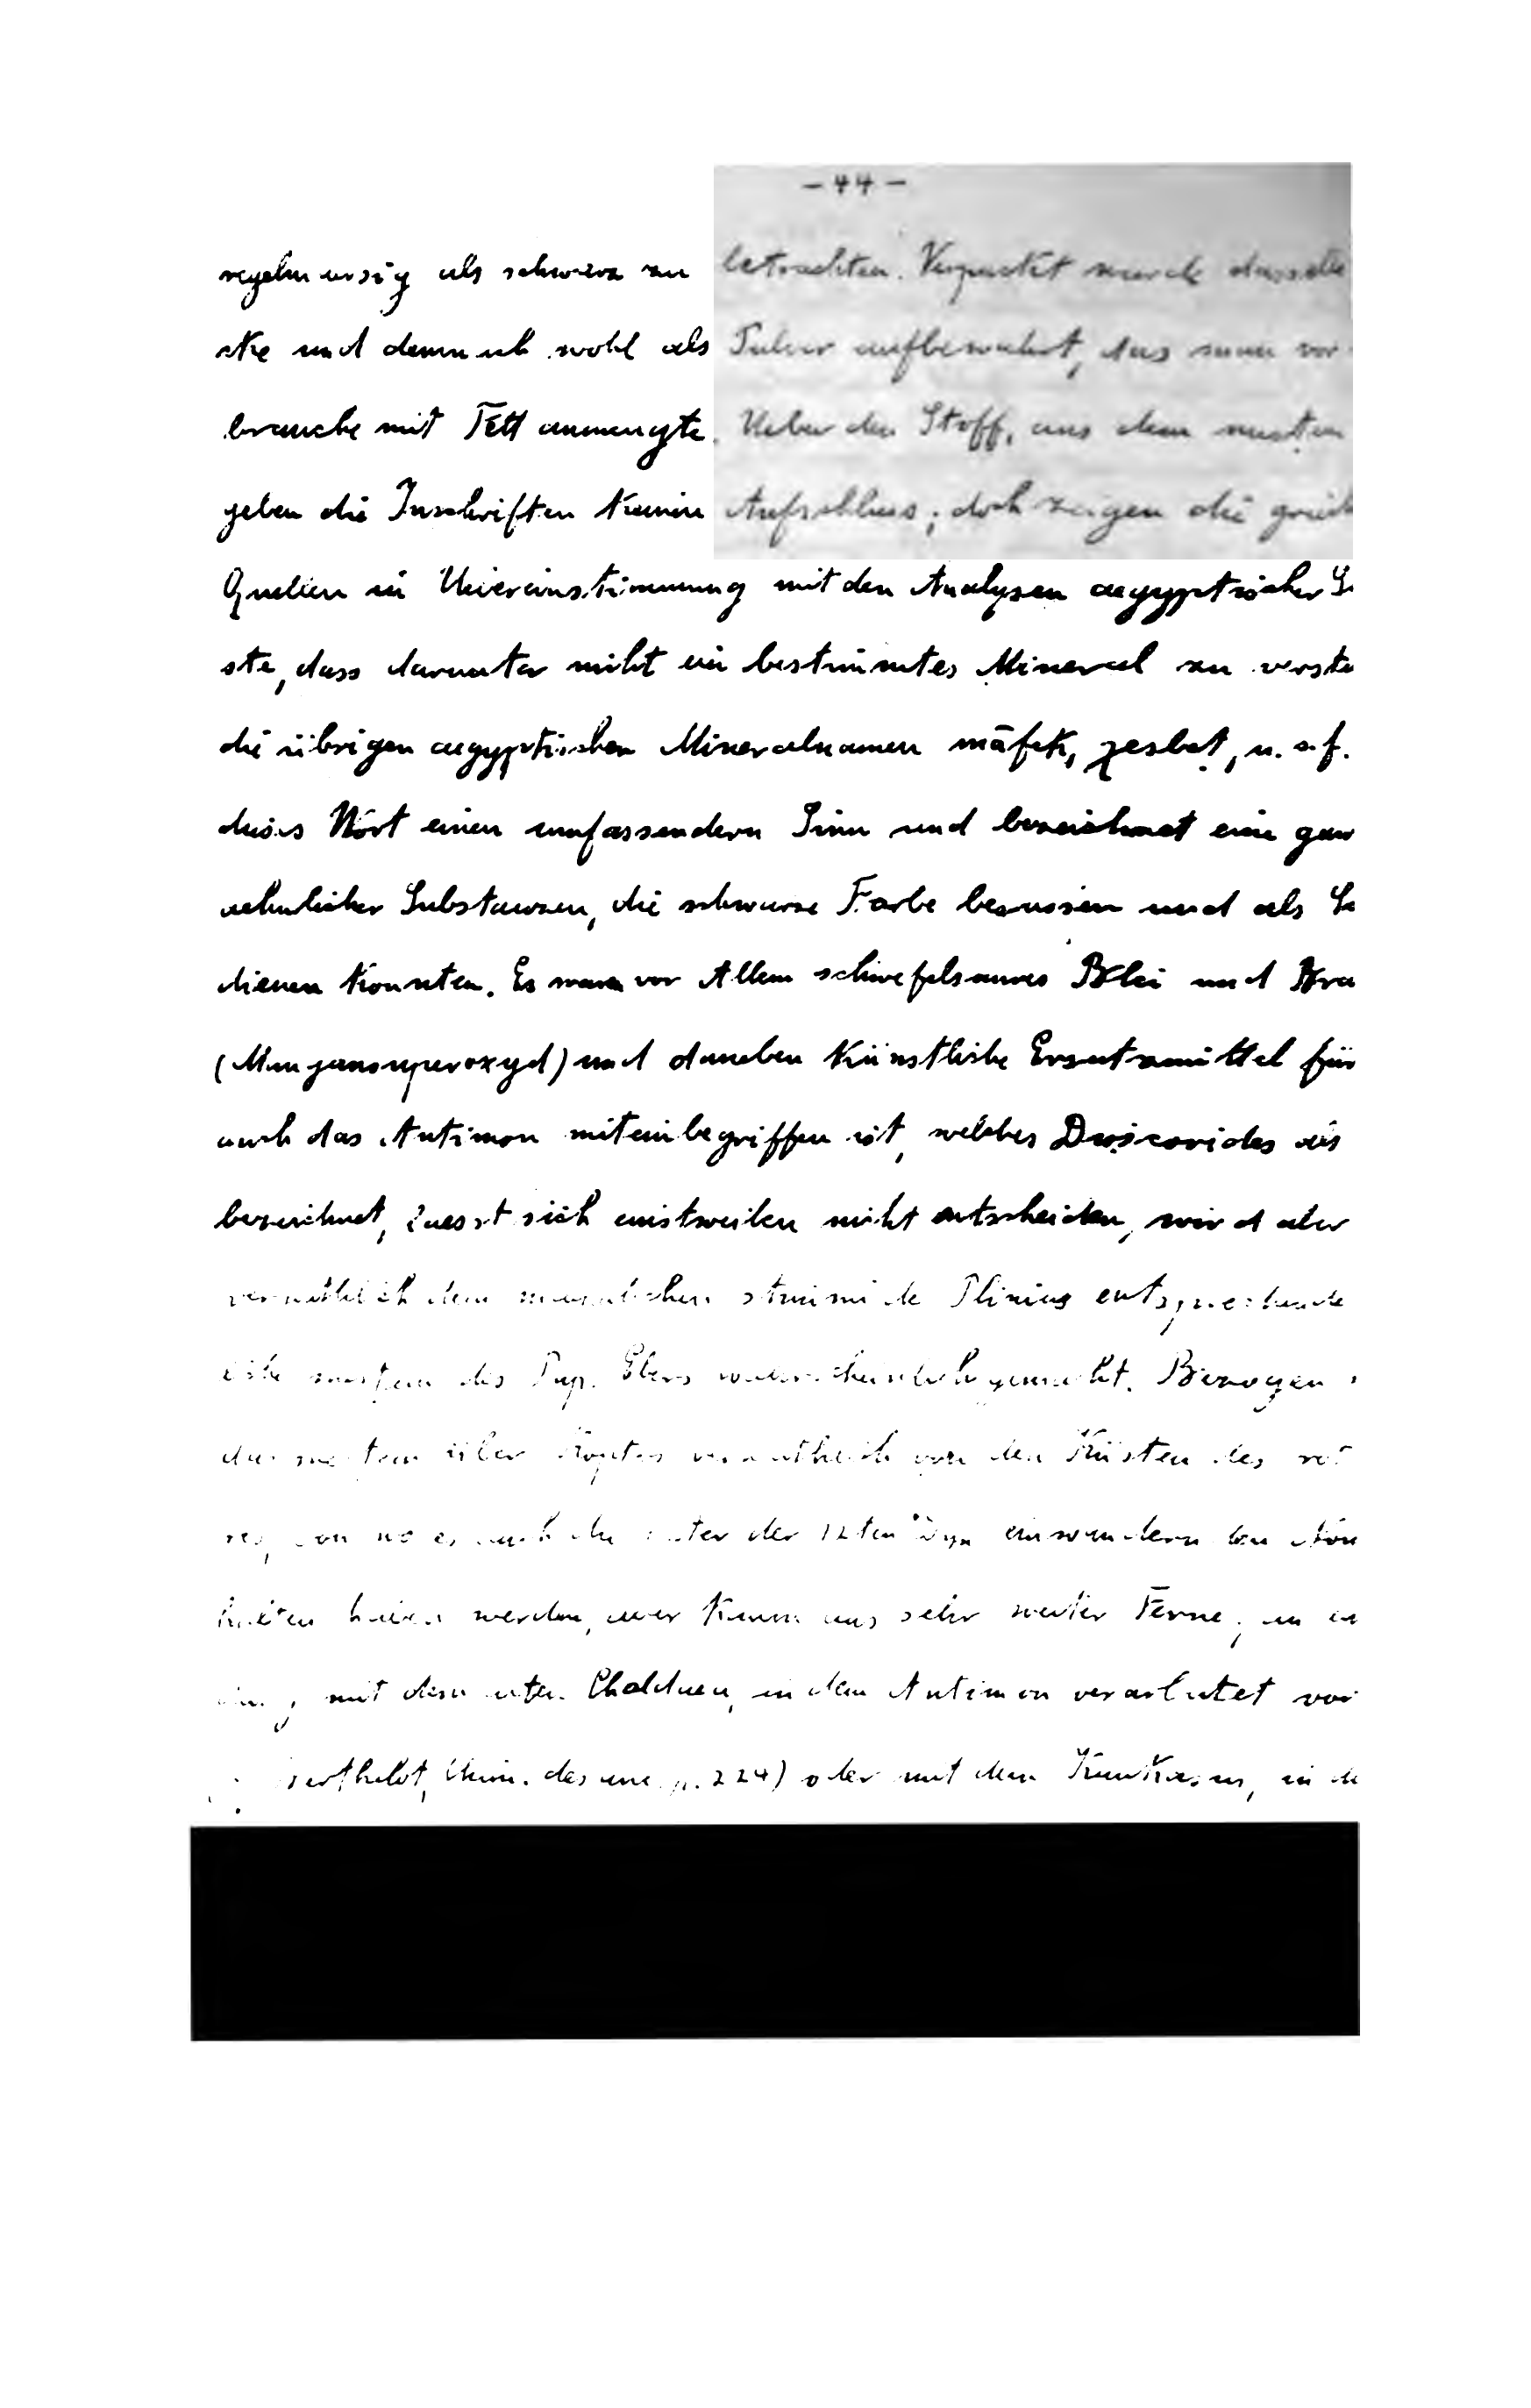 - 44 -
regelmaessig als schwarz zu betrachten. Verpackt wurde dasselbe
und demnach wohl als Pulver aufbewahrt, das man vor
brauche mit Fett anmengte. Ueber den Stoff, aus dem mestem
geben die Inschriften keinen Aufschluss; doch zeigen die griech
Quellen in Uebereinstimmung mit den Analysen aegyptischer
ste, dass darunter nicht ein bestimmtes Mineral zu verste
die übrigen aegyptischen Mineralnamen māfek, χesbet, u. s. f.
dieses Wort einen umfassendern Sinn und bezeichnet eine gan
aehnlicher Substanzen, die schwarze Farbe besassen und als
dienen konnten. Es waren vor Allem schwefelsaures Blei und Bra
(Mangansuperoxyd) und daneben künstliche Ersatzmittel für
auch das Antimon miteinbegriffen ist, welches Dioscorides als
bezeichnet, laesst sich einstweilen nicht entscheiden, wird aber
vermuthlich dem maennlichen stimmi de Plinius entsprechende
mestem des Pap. Ebers wahrscheinlich gemacht. Bezogen
das mestem über Koptos vermuthlich von den Küsten des rot
von wo es auch die unter der 12ten Dyn einwandern den
haben werden, aber kaum aus sehr weiter Ferne; an
mit dem alten Chaldaea, in dem Antimon verarbeitet vor
Berthelot, Chim. des anc. p. 224) oder mit dem Kaukasus, in de